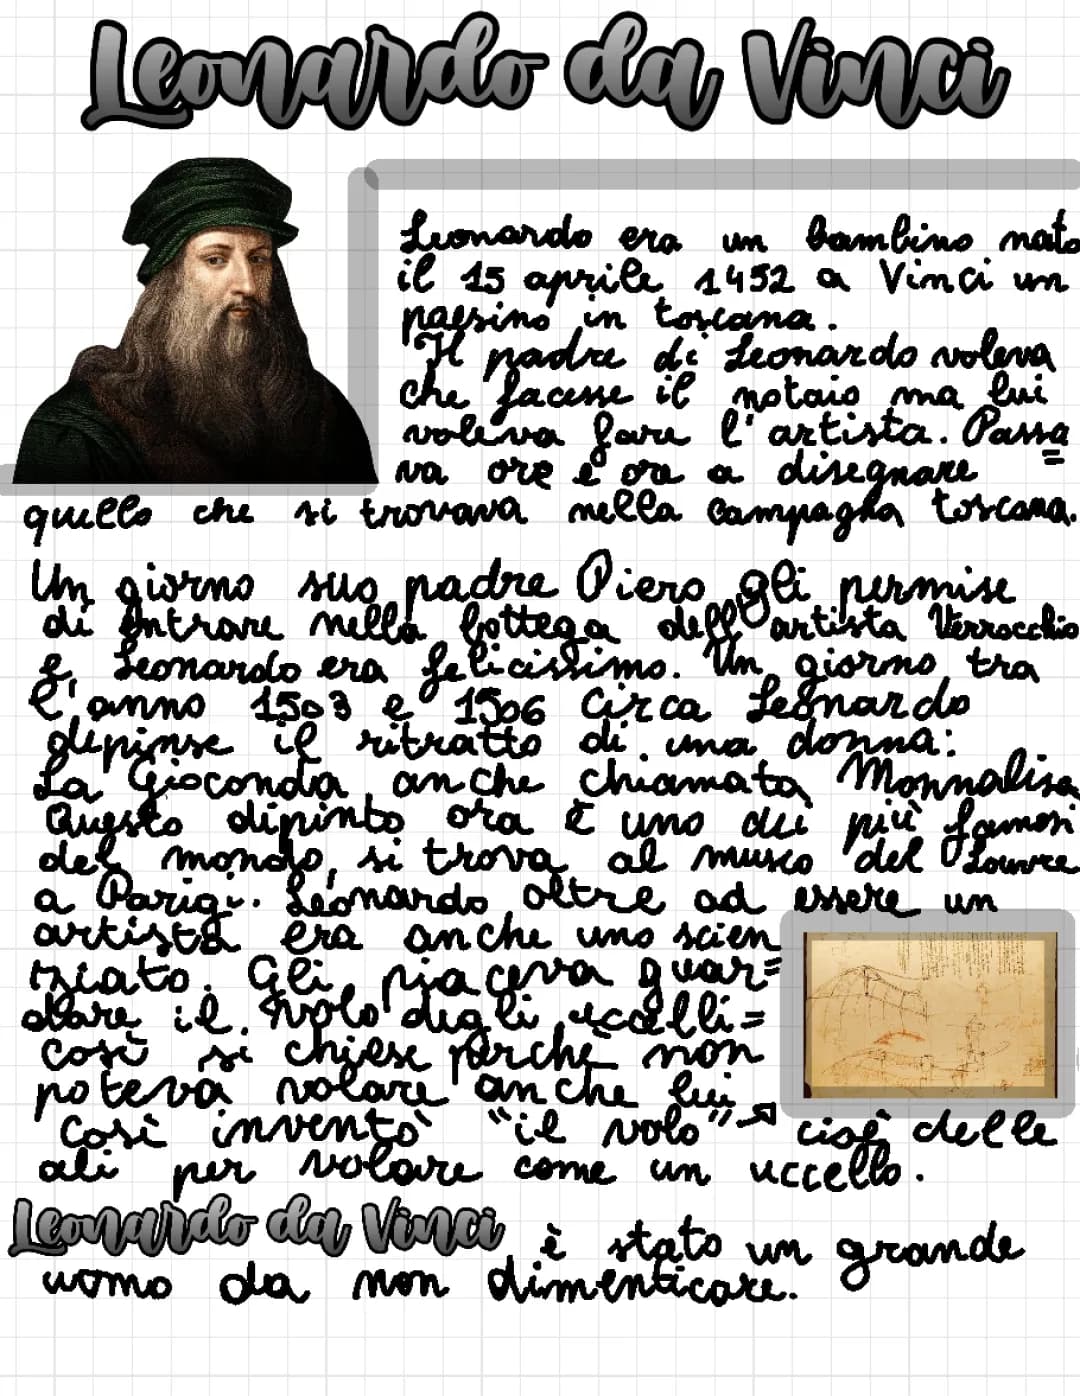 Leonardo da Vinci
Leonardo era un bambino nato
il 15 aprile 1452 a Vinci un
paesino in toscana.
Il padre di Leonardo voleva
che facesse il notaio ma lui
voleva fare l'artista. Passa
va ore e ora a disegnare =
quello che si trovava nella campagna toscana.
Un giorno suo padre Piero gli permise
di entrare nella bottega dell'artista Verrocchio
e Leonardo era felicissimo. Un giorno tra
l'anno 1503 e 1506 circa Leonardo
dipinse il ritratto di una donna:
La Gioconda anche chiamata Monnalisa
Questo dipinto ora è uno dei più famosi
del mondo, si trova al museo del Louvre
a Parigi. Leonardo oltre ad essere un
artista era anche uno scien
ziato. Gli piaceva guar=
dare il volo degli uccelli=
così si chiese perchè non
poteva volare anche lui
Così inventò "il volo" cioè delle
ali per volare come un uccello.
Leonardo da Vinci è stato un grande
uomo da non dimenticare.